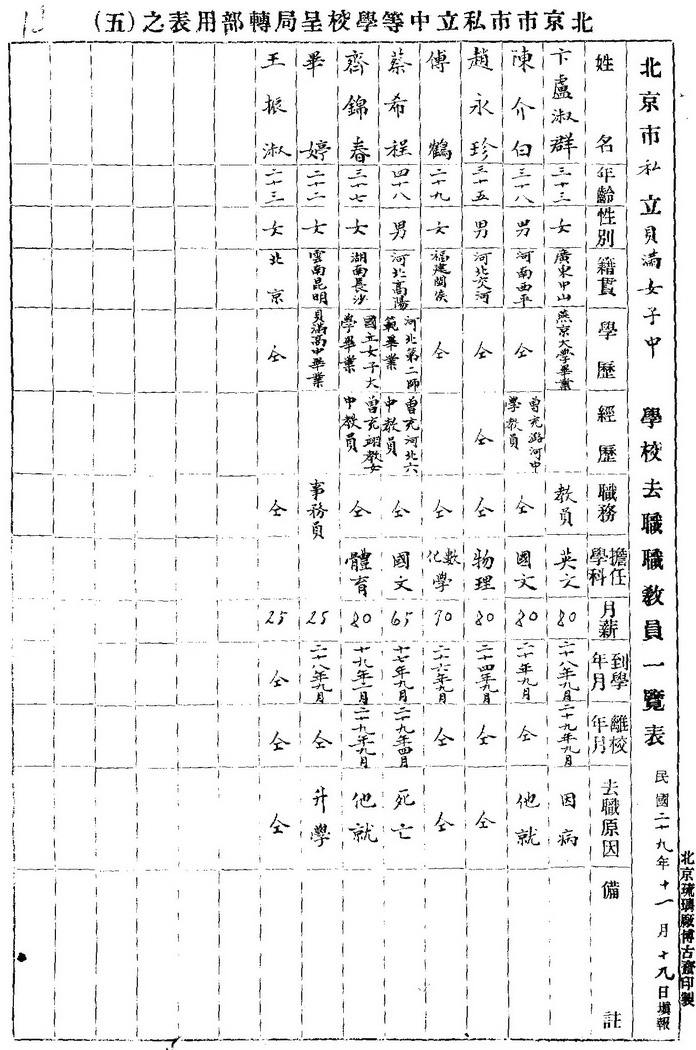 北京市市私立中等學校呈局轉部用表之(五)
北京市私立貝滿女子中學校去職職教員一覽表
民國二十九年十一月十九日填報
北京琉璃廠博古齋印製
姓名 年齡 性別 籍貫 學歷 經歷 職務 擔任學科 月薪 到學年月 離校年月 去職原因 備註
卞盧淑群 三十三 女 廣東中山 燕京大學畢業 教員 英文 80 二十八年九月 二十九年九月 因病
陳介白 三十八 男 河南西平 仝 曾充潞河中學教員 仝 國文 80 二十年九月 仝 他就
趙永珍 三十五 男 河北交河 仝 仝 仝 物理 80 二十四年九月 仝 仝
傅鶴 二十九 女 福建閩侯 仝 仝 數學化 70 二十六年九月 仝 仝
蔡希程 四十八 男 河北高陽 河北第二師範畢業 曾充河北六中教員 仝 國文 65 十七年九月 二十九年四月 死亡
齊錦春 三十七 女 湖南長沙 國立女子大學畢業 曾充翊教女中教員 仝 體育 80 十九年二月 二十九年九月 他就
畢婷 二十二 女 雲南昆明 貝滿高中畢業 事務員 25 二十八年九月 仝 升學
王振淑 二十三 女 北京 仝 仝 25 仝 仝 仝